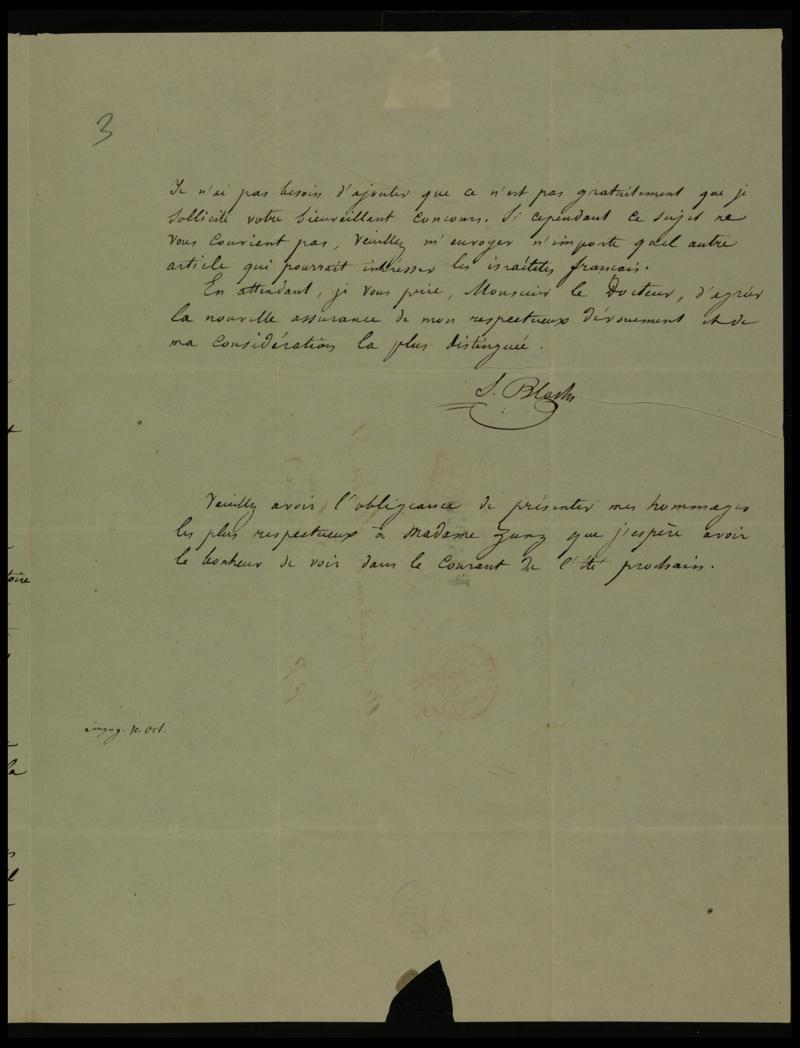 3
Je n'ai pas besoin d'ajouter que ce n'est pas gratuitement que je
sollicite votre bienveillant concours. Si cependant ce sujet ne
vous convient pas, veuillez m'envoyer n'importe quel autre
article qui pourrait intéresser les israélites français.
En attendant, je vous prie, Monsieur le Docteur, d'agréer
la nouvelle assurance de mon respectueux dévouement et de
ma considération la plus distinguée.
S. Bloch
Veuillez avoir l'obligeance de présenter mes hommages
les plus respectueux à Madame Zunz que j'espère avoir
le bonheur de voir dans le courant de l'été prochain.
toire
la
10. Oct.